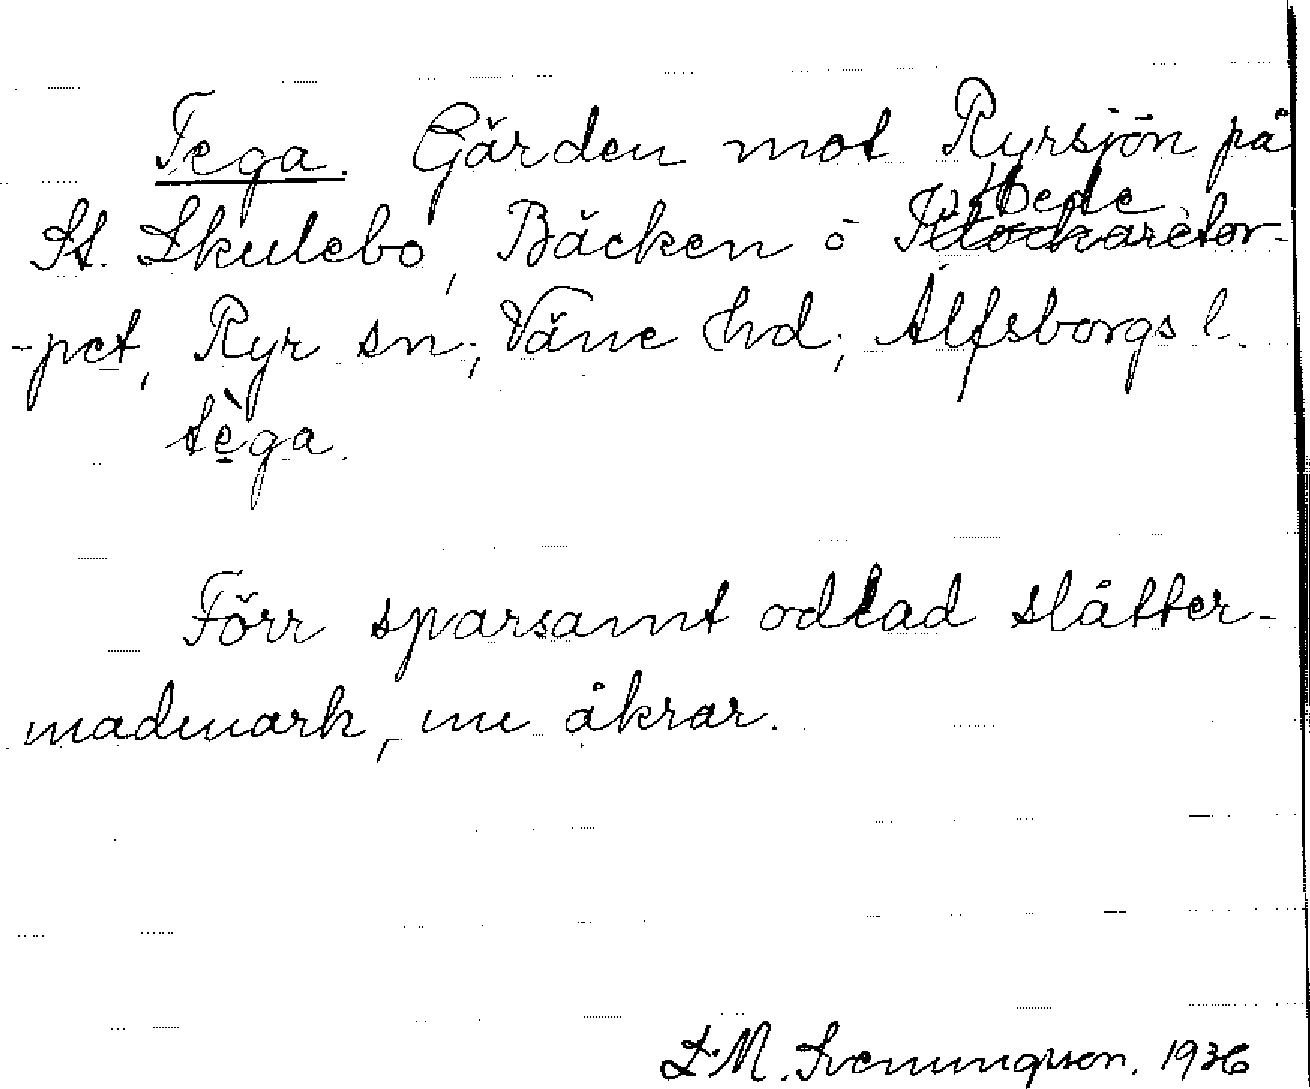 Tega. Gärden mot Ryrsjön på
St. Skulebo, Bäcken o Klockaretor-
-pet, Ryr sn; Väne hd; Älfsborgs l.
tèga.
Förr sparsamt odlad slåtter-
madmark, nu åkrar.
L. M. Svenungsson. 1936